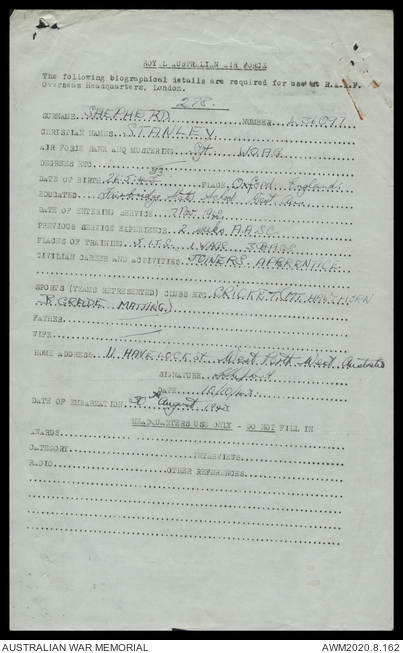 ROYAL AUSTRALIAN AIR FORCE
The following biographical details are required for use at R.A.A.F.
Overseas Headquarters, London.
275.
SURNAME SHEPHERD NUMBER
CHRISTIAN NAMES STANLEY
AIR FORCE RANK AND MUSTERING Sgt W.O.A.G
DEGREES ETC
DATE OF BIRTH PLACE Oxford England
EDUCATED State School West Aus
DATE OF ENTERING SERVICE
PREVIOUS SERVICE EXPERIENCE 2 A.A.S.C.
PLACES OF TRAINING 5 I.T.S. 1 WAGS 3 B.A.G.S
CIVILIAN CAREER AND ACTIVITIES JOINERS APPRENTICE
SPORTS (TEAMS REPRESENTED) CLUBS ETC. CRICKET (MT HAWTHORN
B GRADE MATTING)
FATHER
WIFE
HOME ADDRESS 11 HAVELOCK ST West Perth West Australia
SIGNATURE
DATE 10/10/43
DATE OF EMBARKATION 30th August 1943
HEADQUARTERS USE ONLY - DO NOT FILL IN
AWARDS
CATEGORY INTERVIEWS
RADIO OTHER REFERENCES
AUSTRALIAN WAR MEMORIAL AWM2020.8.162